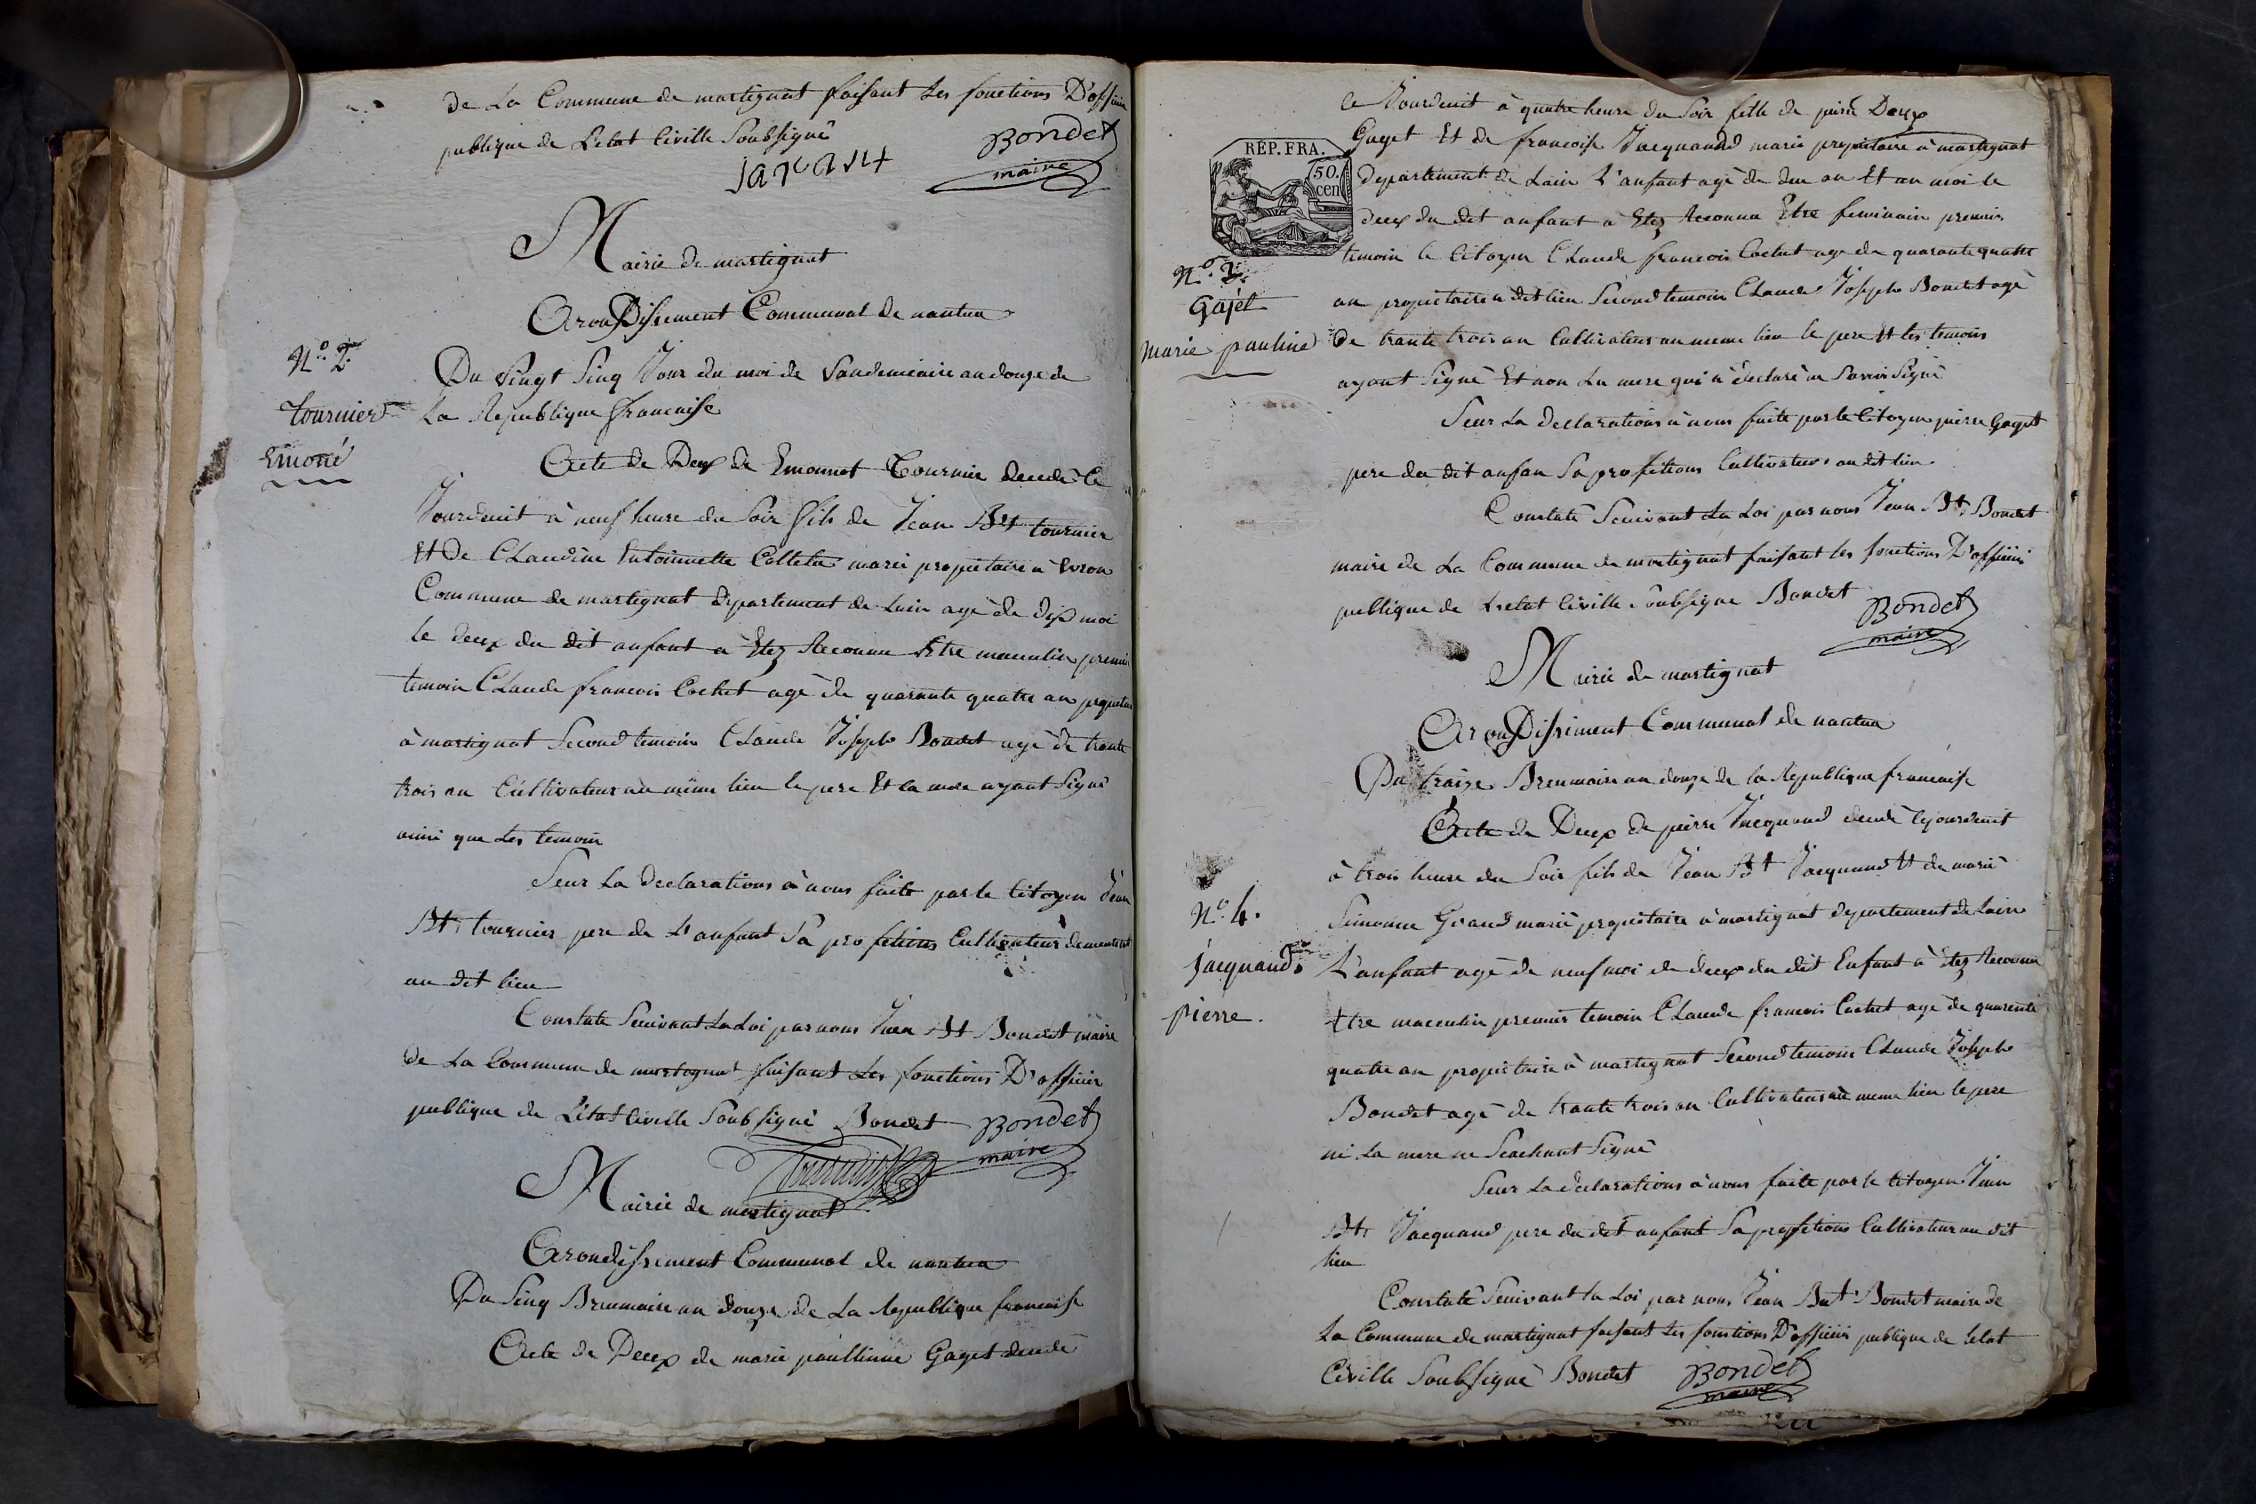 de La Commune de martignat faisant Les fonctions D'officier
publique de Letat Civille Soubsigné
Bondet
maire
Mairie de martignat
Arondissement Communal de nantua
N.° 2.
tournier
Emoné
Du Vingt Sinq Jour du moi de Vandemiaire an douze de
La Republique francaise
Acte de Deux de Emonnet Tournier decedé le
Jourduit à neuf heure du Soir fils de Jean Bte tournier
Et De CLaudine Entoinnette Colletin marié propietaire a Evron
Commune de martignat departement de Lain agé de dix moi
le deux du dit anfant a Etez Reconnu Etre masculin premier
temoin CLaude francois Cochet agé de quarante quatre an propietaire
à martignat Second temoin CLaude Joseph Bondet agé de trante
trois an Cultivateur au même lieu le pere Et la mere ayant Signé
ainsi que Les temoin
Seur La declarations à nous faite par le Citoyen Jean
Bte tournier pere de L'anfant Sa profetions Cultivateur demeurant
au dit lieu
Constaté Seuivant La Loi par nous Jean Bte Bondet maire
de La Commune de martignat faisant Les fonctions D'officier
publique de Létat Civille Soubsigné Bondet
Bondet
maire
Mairie de martignat
Arondissement Communal de nantua
Du Sinq Breumaire an douze de La Republique francaise
Acte de Deux de marie paullinne Gaget decedé
RÉP. FRA.
50.
cen
N.° 3.
Gajet
marie pauline
le Jourduit à quatre heure du Soir fille de pierre Deux
Gaget Et de francoise Jacquand marié propietaire a martignat
departement de Lain L'anfant agé de deu an Et un moi le
deux du dit anfant à Etez Reconnu Etre feminain premier
temoin le Citoyen CLaude francois Cochet agé de quarante quatre
an propietaire a dit lieu Second temoin CLaude Joseph Bondet agé
de trante trois an Cultivateur au meme lieu le pere Et les temoins
ayant Signé Et non La mere qui à declaré ne Savoir Signé
Seur La declarations à nous faite par le Citoyen pierre Gaget
pere du dit anfan Sa profetions Cultivateur au dit lieu
Constaté Seuivant La Loi par nous Jean Bte Bondet
maire de La Commune de martignat faisant les fonctions D'officier
publique de Letat Civille Soubsigné Bondet
Bondet
maire
Mairie de martignat
Arondissement Communal de nantua
Du traize Breumaire an douze de la Republique francaise
N.° 4.
jacquand
pierre.
Acte de Deux de pierre Jacquand decedé le jourduit
à trois heure du Soir fils de Jean Bte Jacquand Et de marie
Simonne Grand marié propietaire a martignat departement de Lain
L'anfant agé de neuf moi le deux du dit Enfant à Etez Reconnu
Etre masculin premier temoin CLaude francois Cochet agé de quarente
quatre an propietaire à martignat Second temoin CLaude Joseph
Bondet agé de trante trois an Cultivateur au meme lieu le pere
ni La mere ne Seachant Signé
Seur La declarations à nous faite par le Citoyen Jean
Bte Jacquand pere du dit anfant Sa profetions Cultivateur au dit
lieu
Constaté Seuivant La Loi par nous Jean Bat Bondet maire de
La Commune de martignat faisant Les fonctions D'officier publique de Letat
Civille Soubsigné Bondet
Bondet
maire